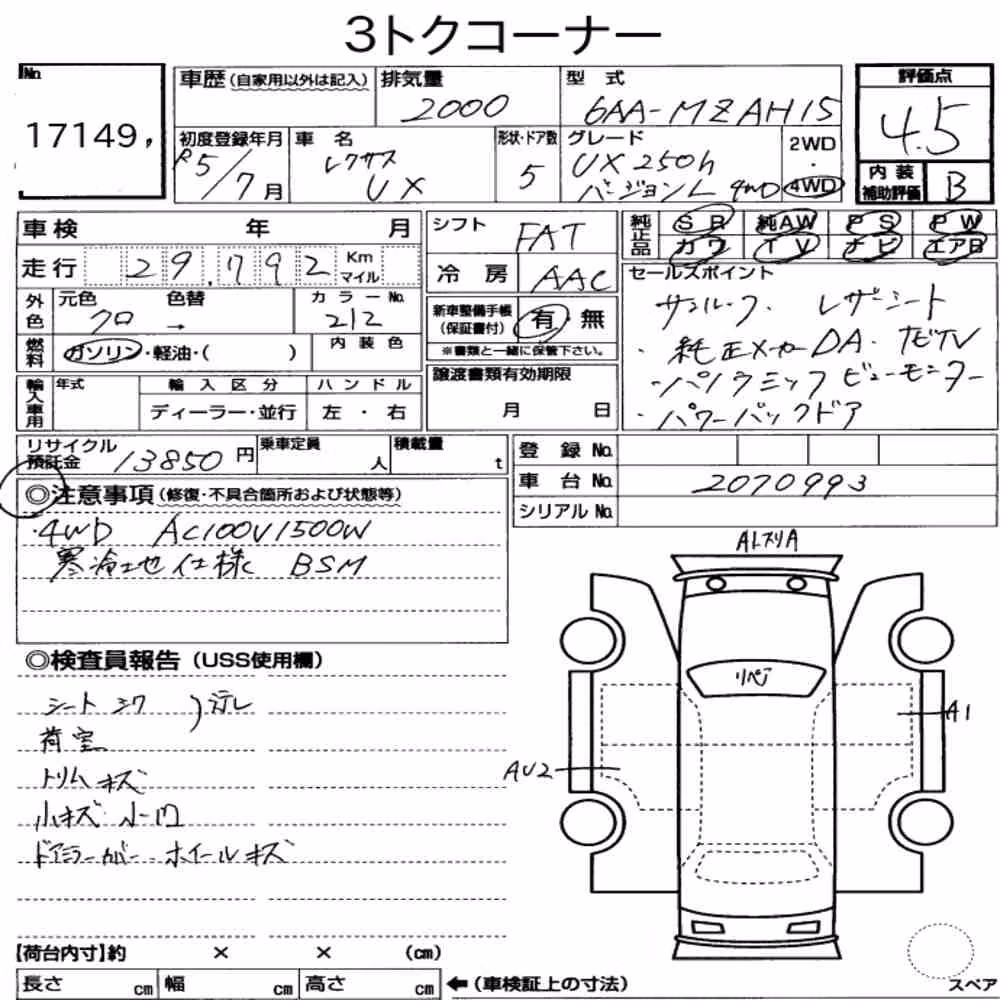 3トクコーナー
No. 17149,
車歴(自家用以外は記入) 排気量 2000 型式 6AA-MZAH15 評価点 4.5
初度登録年月 R5/7月 車名 レクサス UX 形状・ドア数 5 グレード UX250h バージョンL 4WD 2WD・4WD
内装補助評価 B
車検 年 月 シフト FAT 純正品 SR 純AW PS PW
カワ TV ナビ エアB
走行 29,792 Km マイル 冷房 AAC セールスポイント
外色 元色 クロ 色替 → カラーNo. 212 新車整備手帳(保証書付) 有 無 サンルーフ. レザーシート
燃料 ガソリン・軽油・( ) 内装色 ※書類と一緒に保管下さい。 ・純正メーカーDA. ナビTV
・パノラミックビューモニター
輸入車用 年式 輸入区分 ハンドル 譲渡書類有効期限 ・パワーバックドア
ディーラー・並行 左・右 月 日
リサイクル預託金 13850円 乗車定員 人 積載量 t 登録No.
車台No. 2070993
◎注意事項(修復・不具合箇所および状態等) シリアルNo.
・4WD AC100V1500W
寒冷地仕様 BSM
ALスリA
◎検査員報告(USS使用欄)
リペア
シート シワ )汚レ
荷室
A1
トリムキズ
AU2
小キズ 小凹
ドアミラーカバー ホイールキズ
【荷台内寸】約 × × (cm)
長さ cm 幅 cm 高さ cm ←(車検証上の寸法) スペア